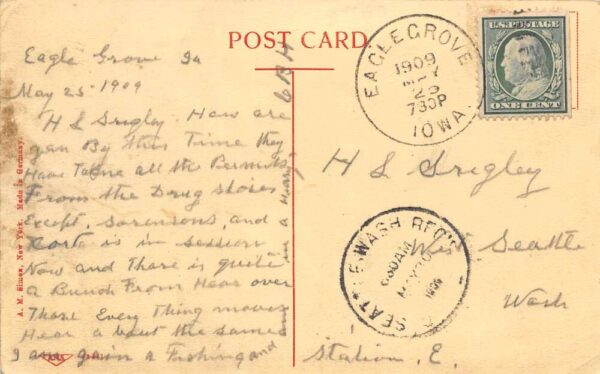 POST CARD.
Eagle Grove Ia
May 25 - 1909
H L Srigley. How are
you By this Time they
Have Takne all the Permits
From the Drug stores
Except. Sorensons, and a
Corte is in session
Now and There is quite
a Bunch From Hear over
Thare Every Thing moves
Hear a bout the same
I am goin a Fishing and
A. M. Simon, New York. Made in Germany.
EAGLE GROVE
1909
MAY
25
730P
IOWA.
U.S. POSTAGE
ONE CENT
H L Srigley
West Seattle
Wash
Station, E.
SEATTLE, WASH REC'D
630AM
MAY 30
1909